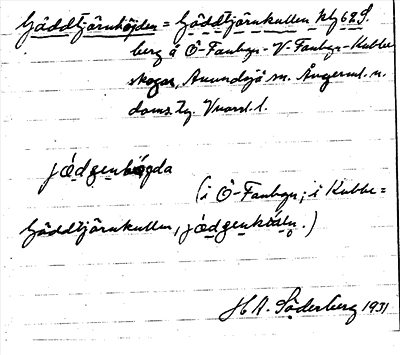 Gäddtjärnhöjden = Gäddtjärnkullen kbl 62 S.
berg å Ö-Fanbyn- V-Fanbyn-Kubbe
skogar, Anundsjö sn. Ångerml. n.
doms. lg. Vnorrl. l.
jǽdgenhø̀gda
(i Ö-Fanbyn; i Kubbe =
Gäddtjärnkullen, jǽdgenkǿln.)
H A. Söderberg 1931